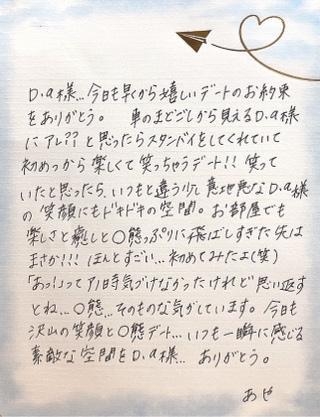 D.a様...今日も早くから嬉しいデートのお約束
をありがとう。 車のまどごしから見えるD.a様
にアレ?? と思ったらスタンドイをしてくれていて
初めっから楽しくて笑っちゃうデート!! 笑って
いたと思ったら、いつもと違う少し意地悪なD.a様
の笑顔にもドキドキの空間。お部屋でも
楽しさと癒しと〇態っぷりに飛ばしすぎた先は
まさか!!! ほんとすごい...初めてみたよ(笑)
「あっ!」って 日時気づけなかったけれど思い返す
とね...〇態...そのものな気がしています。今日も
沢山の笑顔と〇態デート...いつも一瞬に感じる
素敵な空間をD.a様... ありがとう。
あや